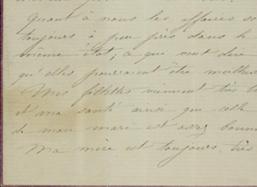 Quant à nous les affaires so
toujours à peu près dans le
même état, ce que veut dire
qu'elles pourraient être meilleur
Mes fillettes viennent très b
et ma santé ainsi que celle
de mon mari est assez bonne
Ma mère est toujours très